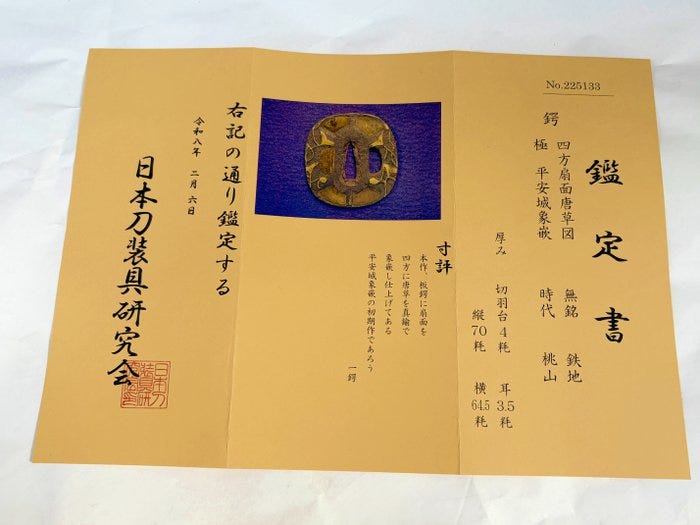 No.225133
鑑定書
鍔 四方扇面唐草図 無銘 鉄地
極 平安城象嵌 時代 桃山
厚み 切羽台4粍 耳3.5粍
縦70粍 横64.5粍
寸評
本作、板鍔に扇面を
四方に唐草を真鍮で
象嵌し仕上げてある
平安城象嵌の初期作であろう
一鍔
右記の通り鑑定する
令和八年 二月 六日
日本刀装具研究会